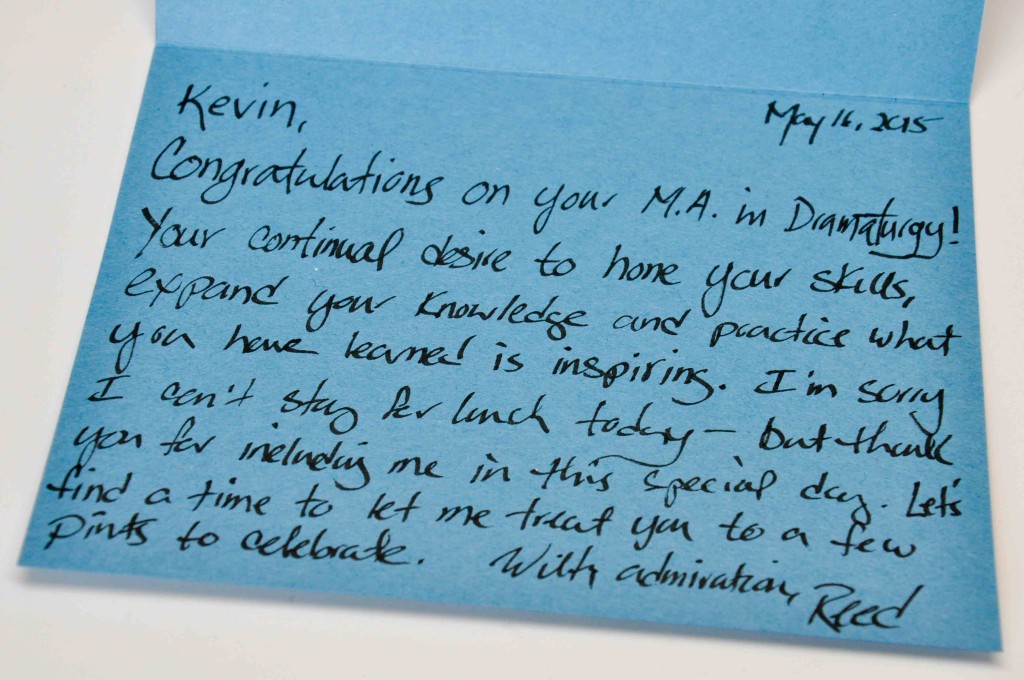 Kevin,
May 16, 2015
Congratulations on your M.A. in Dramaturgy!
Your continual desire to hone your skills,
expand your knowledge and practice what
you have learned is inspiring. I'm sorry
I can't stay for lunch today – but thank
you for including me in this special day. Let's
find a time to let me treat you to a few
pints to celebrate. With admiration,
Reed